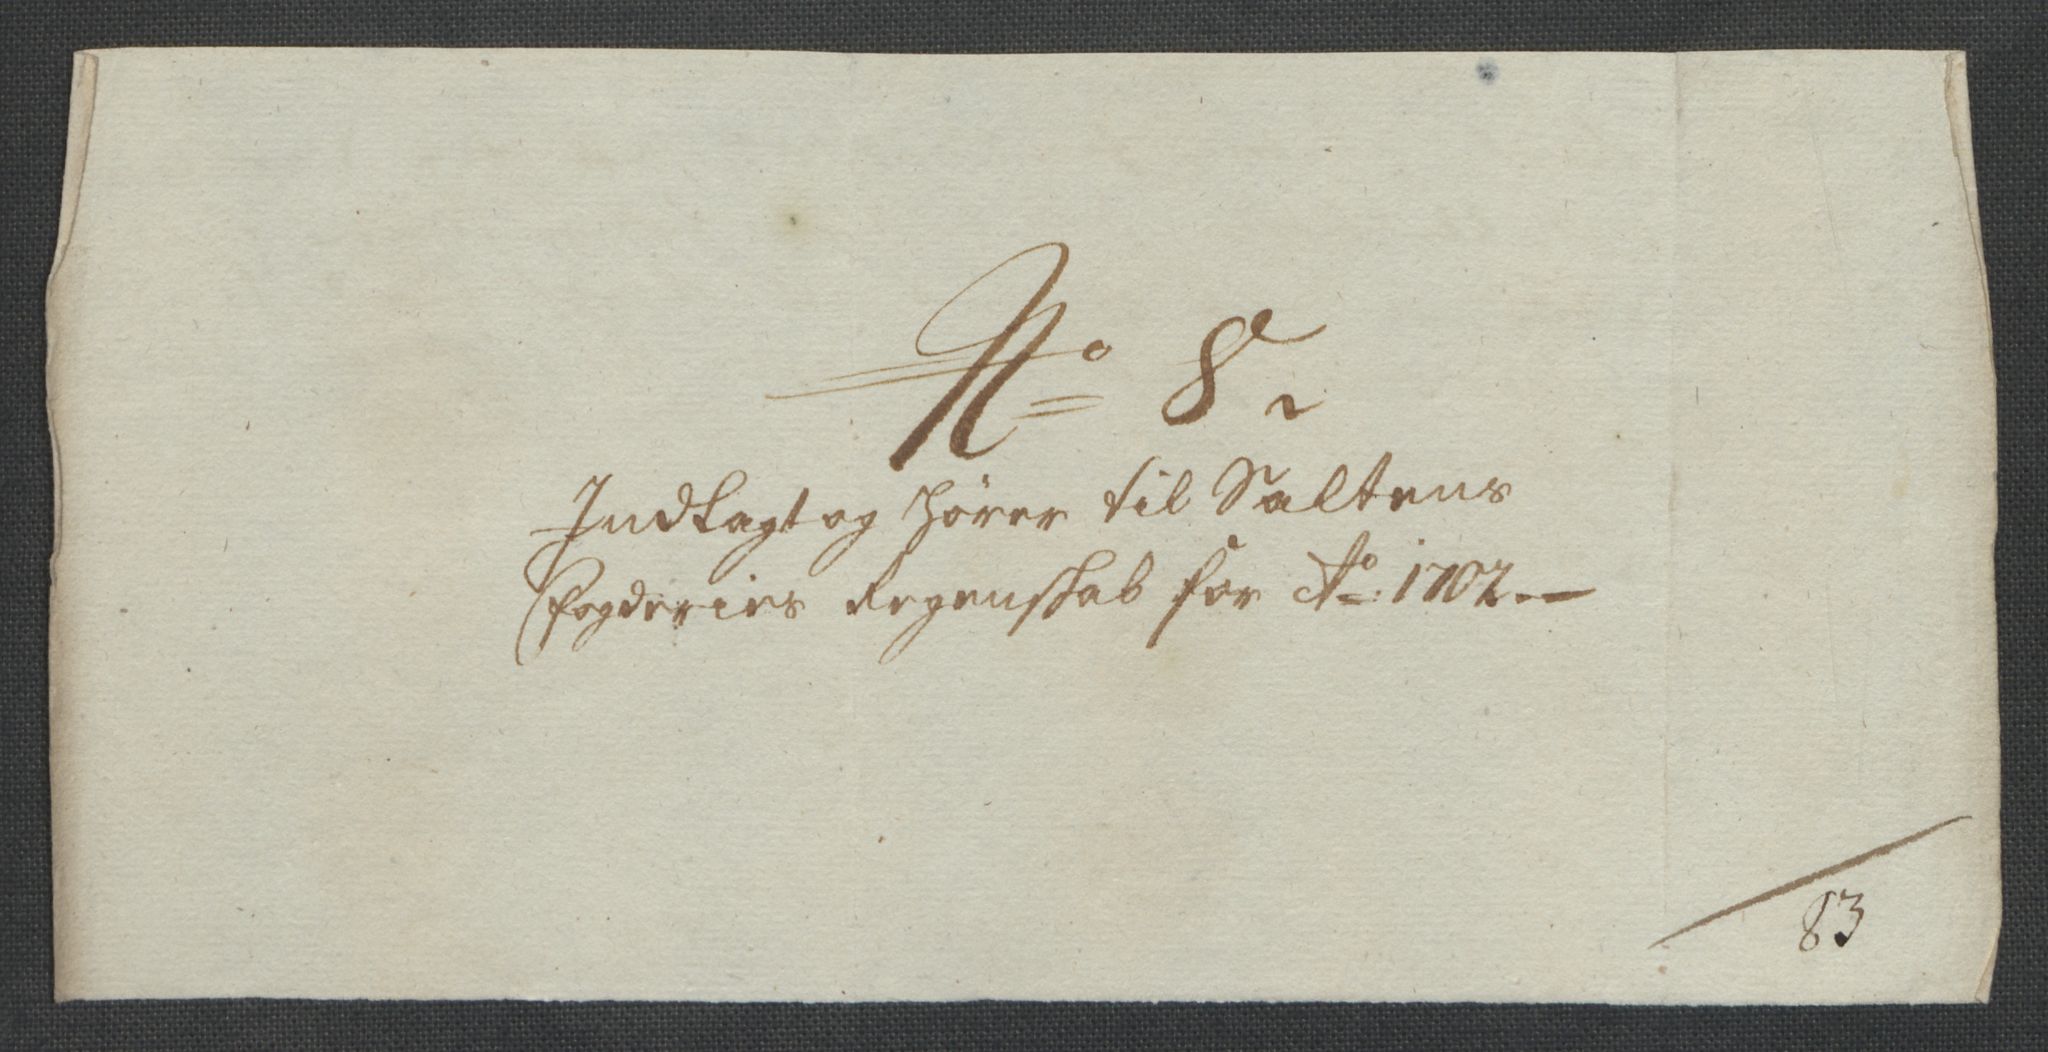 No 8,
Indlagt og hører til Saltens
fogderies Regenskab for Ao: 1702.—
83